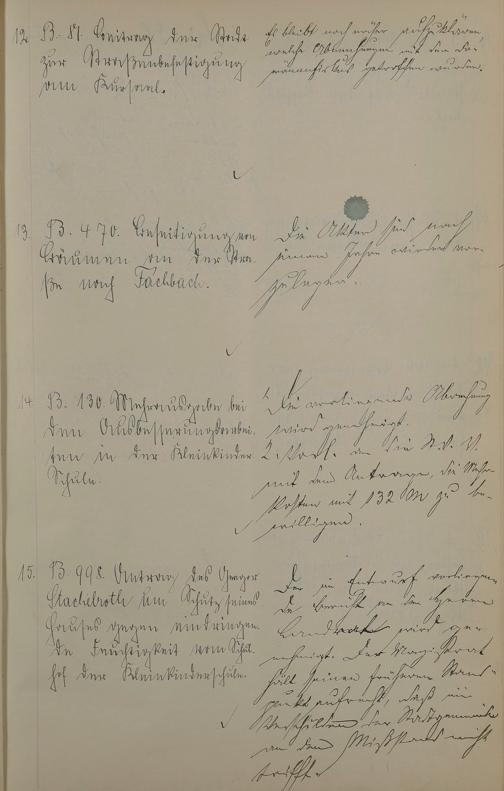 12. B. 81. Beitrag der Stadt
zur Straßenbefestigung
am Kursaal.
Es bleibt noch näher aufzuklären,
welche Abmachungen mit dem
getroffen wurden.
13. B. 470. Beseitigung von
Bäumen an der Stra-
ße nach Fachbach.
Die Akten sind nach
einem Jahre wieder vor-
zulegen.
14. B. 130. Mehrausgabe bei
den Ausbesserungsarbei-
ten in der Kleinkinder
Schule.
1. Die vorliegende Abrechnung
wird genehmigt.
2. Vorl. an die St. V. V.
mit dem Antrage, die Mehr-
kosten mit 132 M zu be-
willigen.
15. B 998. Antrag des Gregor
Stachelroth um Schutz seines
Hauses gegen eindringen-
de Feuchtigkeit vom Schul-
hof der Kleinkinderschule.
Der im Entwurf vorliegen-
de Bericht an den Herrn
Landrat wird ge-
nehmigt. Der Magistrat
hält seinen früheren Stand-
punkt aufrecht, daß ein
Verschulden der Stadtgemeinde
an dem Mißstand nicht
trifft.